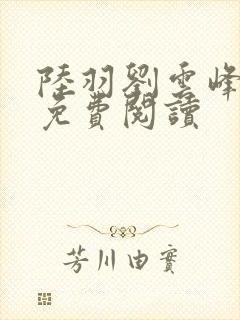 陸羽劉雲峰
免費閱讀
芳川由實